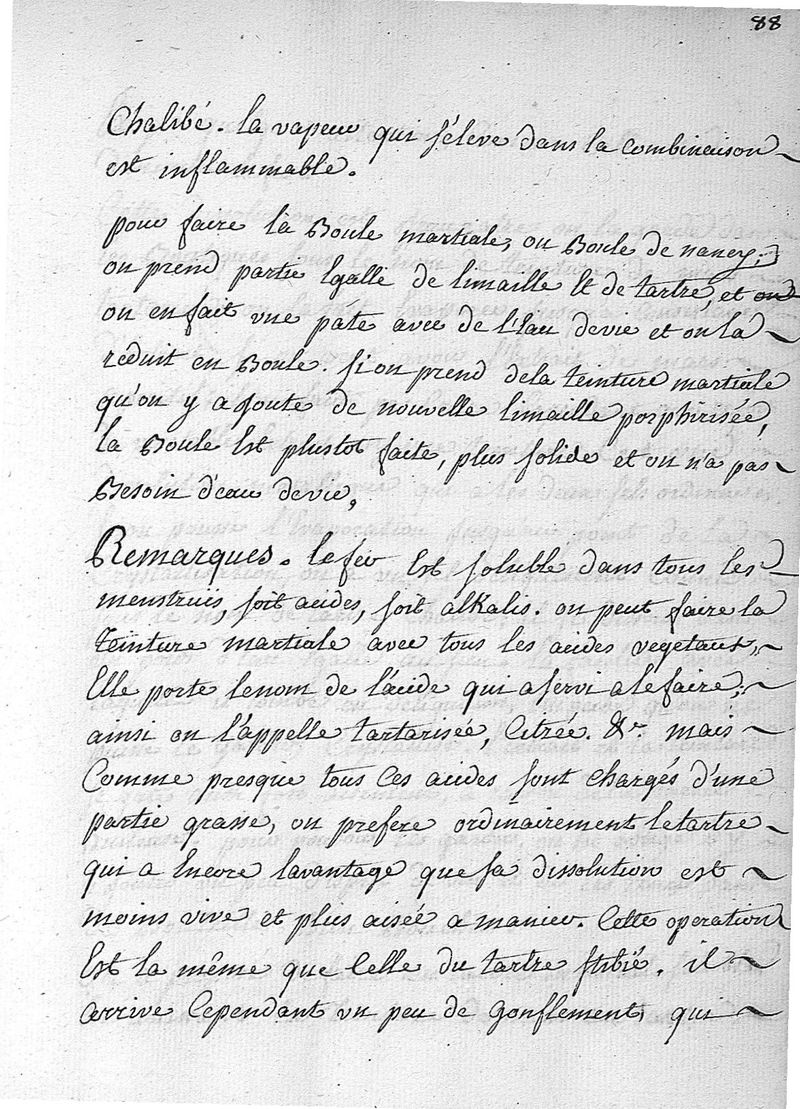 88
Chalibé. la vapeur qui s'éleve dans la combinaison
est inflammable.
pour faire la Boule martiale, ou Boule de nancy,
on prend partie Egalle de limaille Et de tartre, et on
on en fait une pâte avec de l'Eau devie et on la
réduit en Boule. si on prend dela teinture martiale
qu'on y ajoute de nouvelle limaille porphirisée,
la Boule Est plustot faite, plus solide et on n'a pas
Besoin d'eau devie,
Remarques. le fer Est soluble dans tous les
menstruës, soit acides, soit alkalis. on peut faire la
teinture martiale avec tous les acides vegetaux,
Elle porte lenom de l'acide qui a servi a le faire,
ainsi on l'appelle tartarisée, Citrée. &c. mais
Comme presque tous Ces acides sont chargés d'une
partie grasse, on prefere ordinairement letartre
qui a Encore lavantage que sa dissolution est
moins vive et plus aisée a manier. Cette operation
Est la même que Celle du tartre stibié. il
arrive Cependant un peu de gonflement, qui